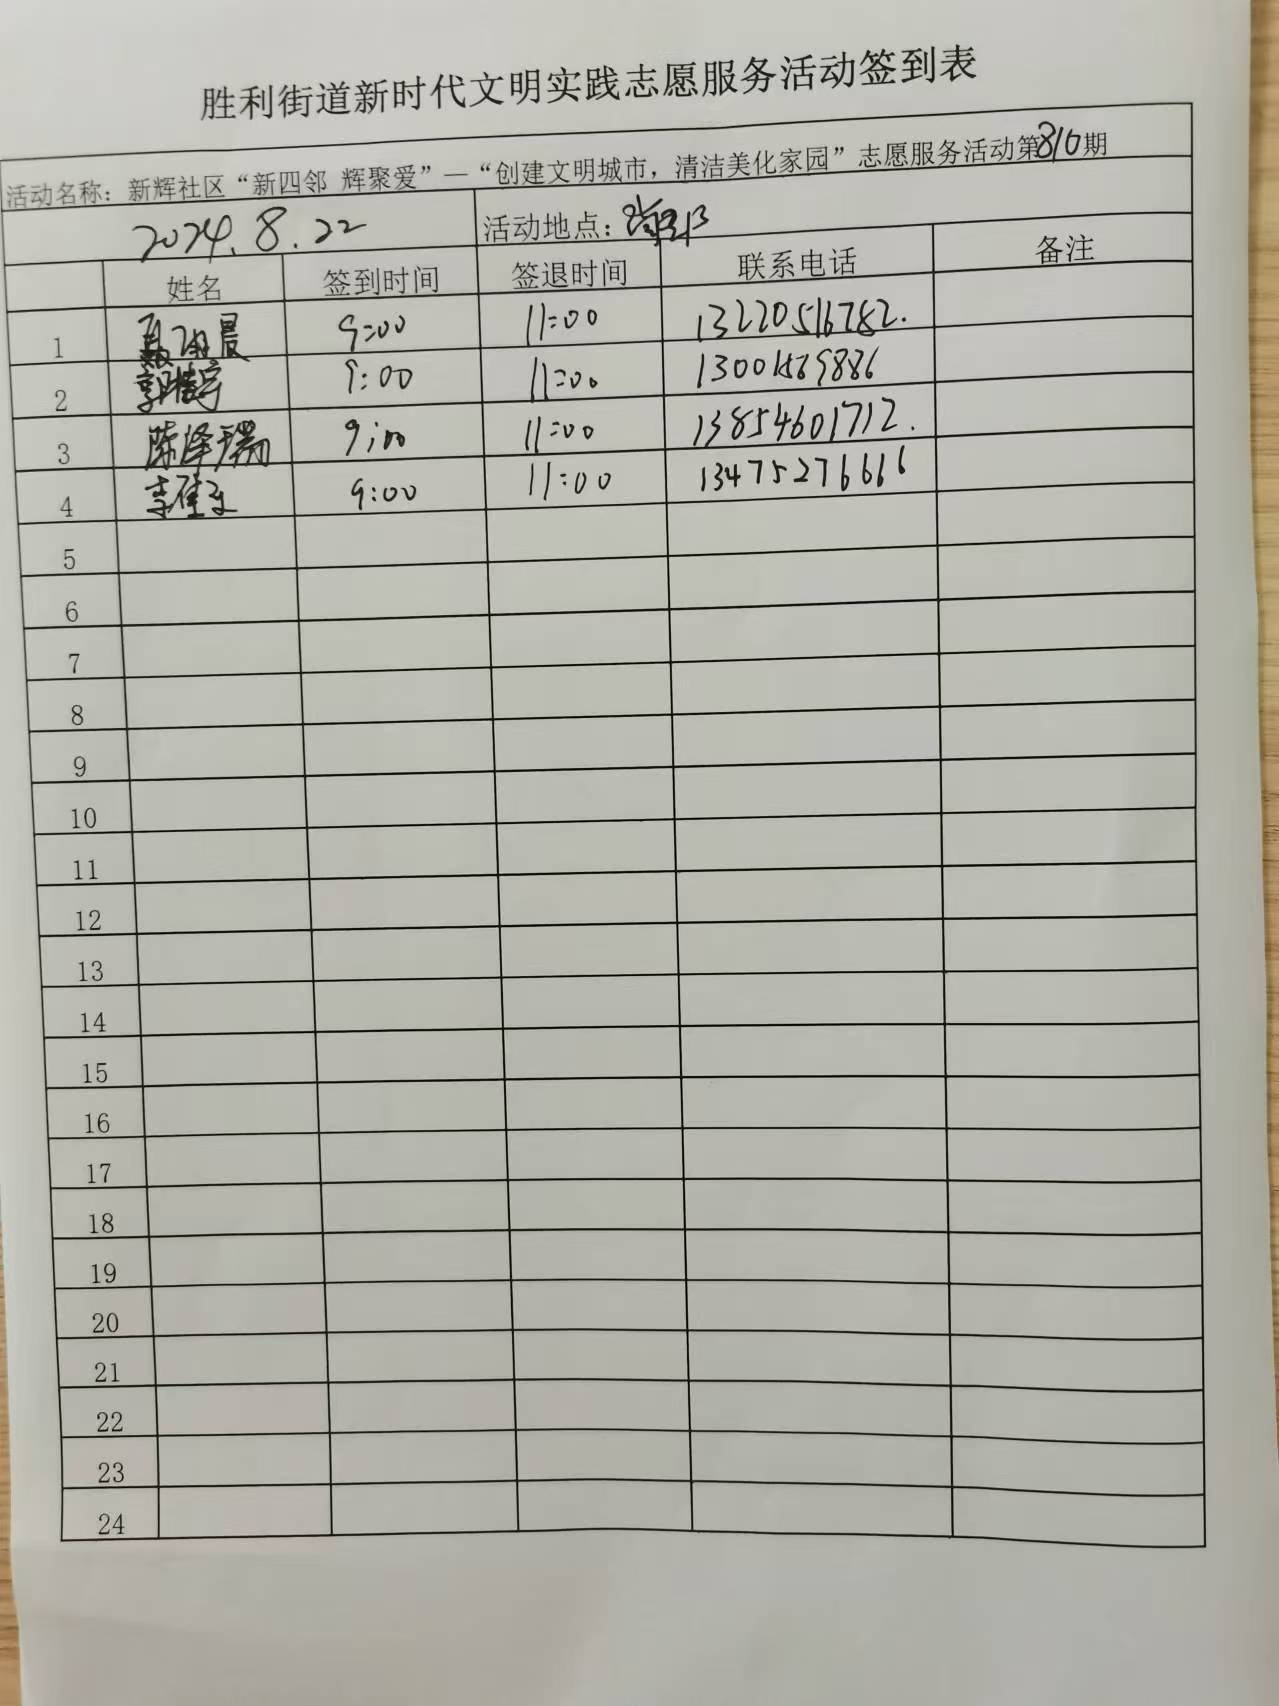 胜利街道新时代文明实践志愿服务活动签到表
活动名称：新辉社区“新四邻 辉聚爱”—“创建文明城市，清洁美化家园”志愿服务活动第810期
2024.8.22 活动地点：
姓名 签到时间 签退时间 联系电话 备注
1 晨 9:00 11:00 13220516782.
2 郭 宇 9:00 11:00 1300 9886
3 陈泽瑞 9:00 11:00 13854601712.
4 李佳 9:00 11:00 13475276666
5
6
7
8
9
10
11
12
13
14
15
16
17
18
19
20
21
22
23
24